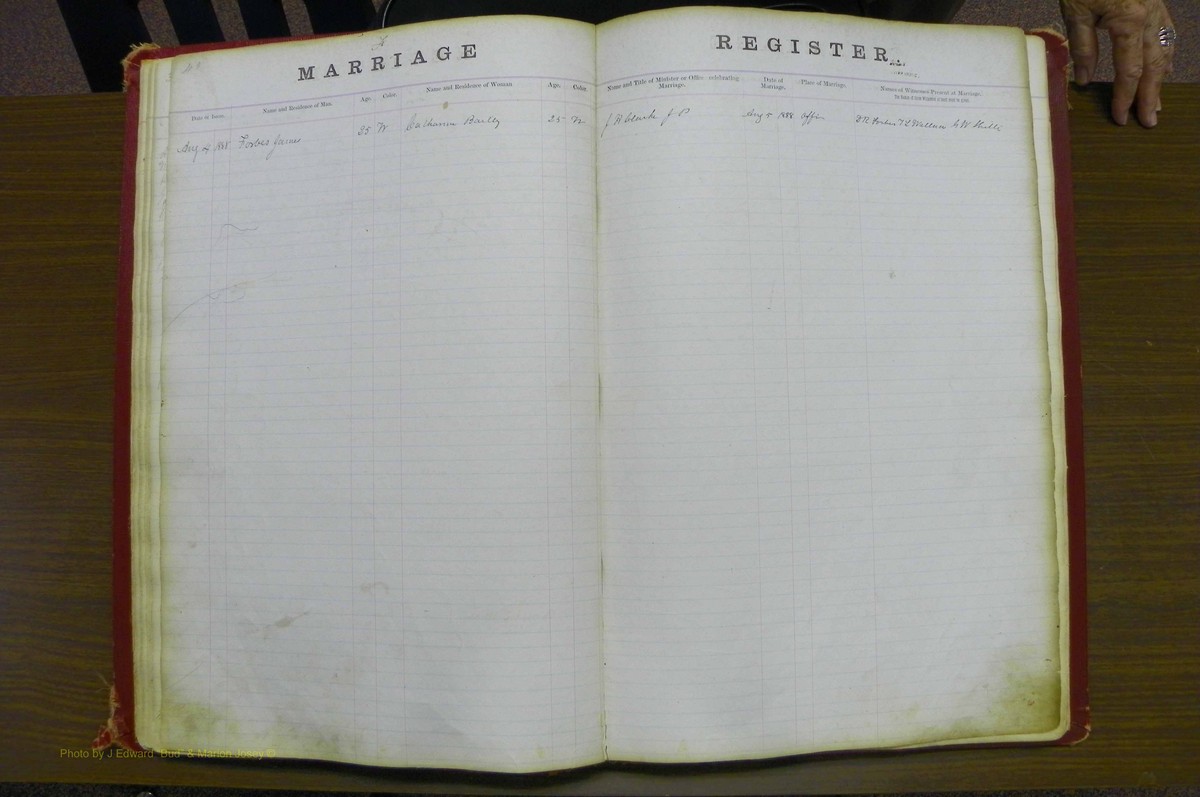 MARRIAGE REGISTER
Date of Issue.
Name and Residence of Man.
Age.
Color.
Name and Residence of Woman
Age.
Color.
Name and Title of Minister or Officer celebrating Marriage.
Date of Marriage.
Place of Marriage.
Names of Witnesses Present at Marriage.
Aug 4 1888 Forbes James 25 W Catharine Bailey 25 W J H Clarke J P Aug 5 1888 Office
Photo by J Edward "Bud" & Marion Josey ©